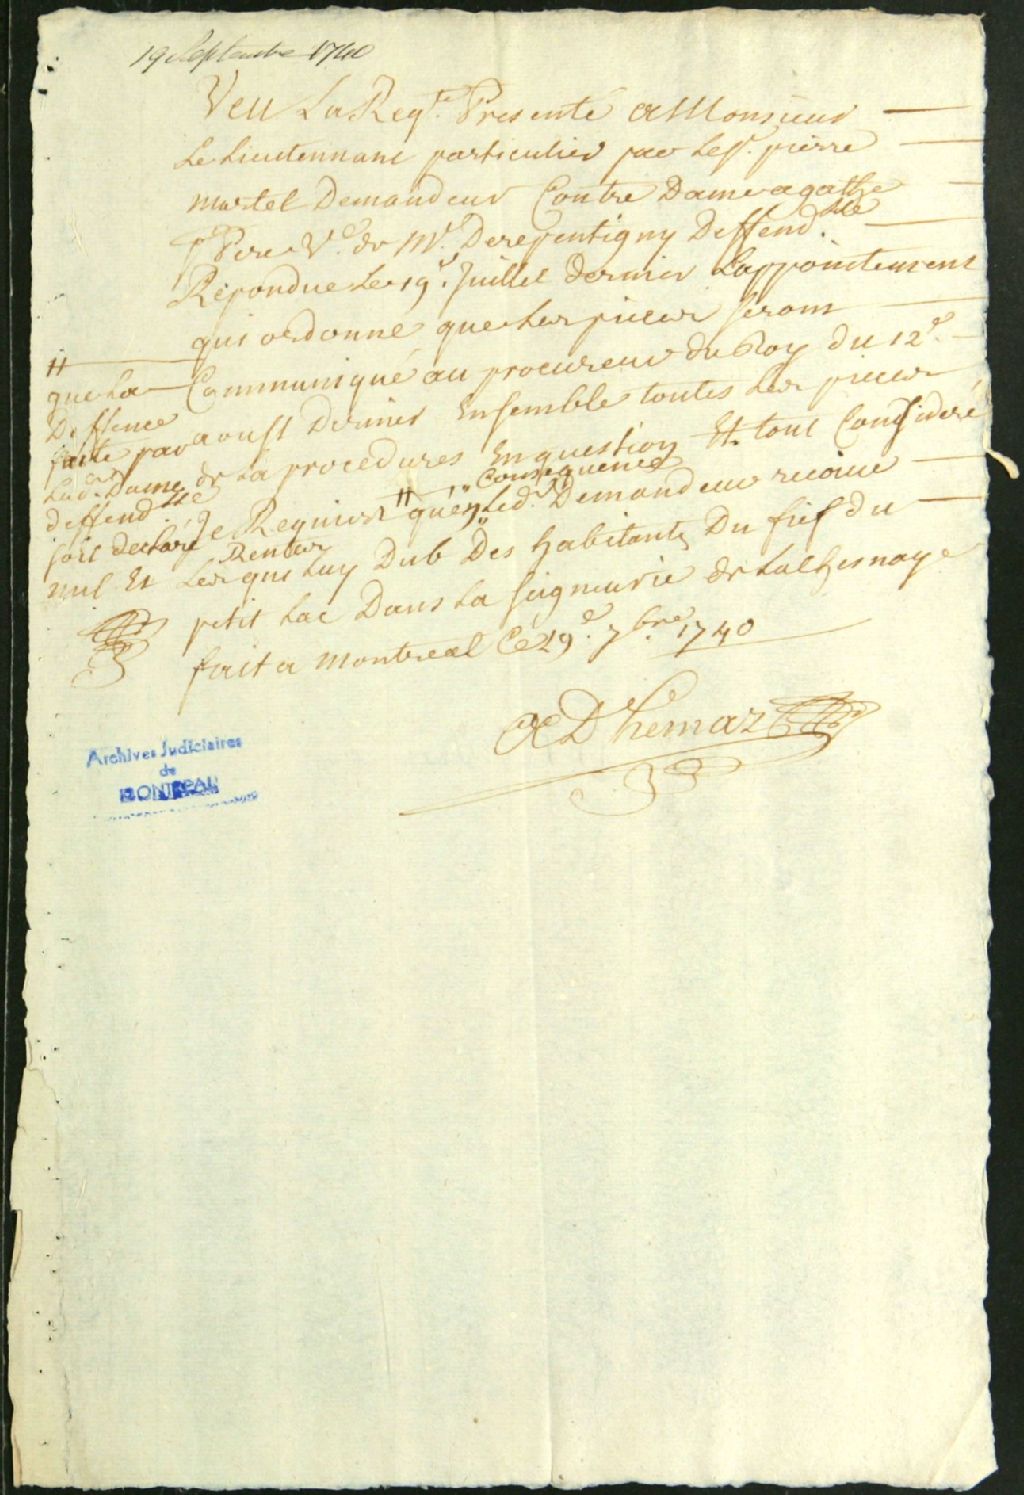 19 Septembre 1740
Veu La Reqte. Presenté a Monsieur
Le Lieutennant particulier par Le Sr. pierre
martel Demandeur Contre Dame agathe
St Pere Ve. de Mr. Derepentigny Deffend.sse
Répondue Le 19e. Juillet dernier Lappointement
qui ordonne que Les pieces seront
Communiqué au procureur du Roy du 12e.
aoust Dernier Ensemble toutes Les pieces
de La procedures En question Et tout Consideré
Je Requiers # quen Consequence Led. Demandeur recoive
Les Rentes qui Luy Dub Des habitants Du fief du
petit Lac Dans La seigneurie de Lachesnaye
fait a Montreal Ce 29e. 7bre. 1740
# que La
Deffence
faite par
Lad. Dame
deffend.sse
soit declaré
nul Et
A D hemar
Archives Judiciaires
de
MONTREAL